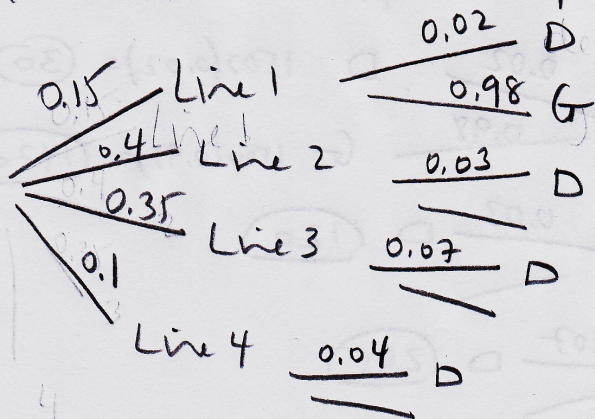 0.02 D
0.15 Line 1
0.98 G
0.4 Line 2
0.03 D
0.35 Line 3
0.07 D
0.1
Line 4
0.04 D